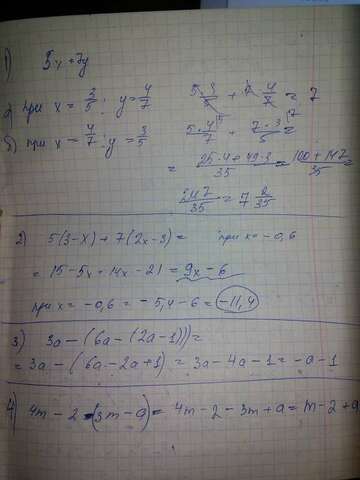 1) 5x + 7y
а) при x = 3/5; y = 4/7   5·3/5 + 7·4/7 = 7
б) при x = 4/7; y = 3/5   5·4/7 + 7·3/5 =
= 25·4+49·3/35 = 100+147/35 =
247/35 = 7 2/35
2) 5(3-x) + 7(2x-3) =   при x = -0,6
= 15 - 5x + 14x - 21 = 9x - 6
при x = -0,6 = -5,4 - 6 = -11,4
3) 3a - (6a - (2a-1))) =
= 3a - (6a - 2a + 1) = 3a - 4a - 1 = -a - 1
4) 4m - 2 - (3m - a) = 4m - 2 - 3m + a = m - 2 + a